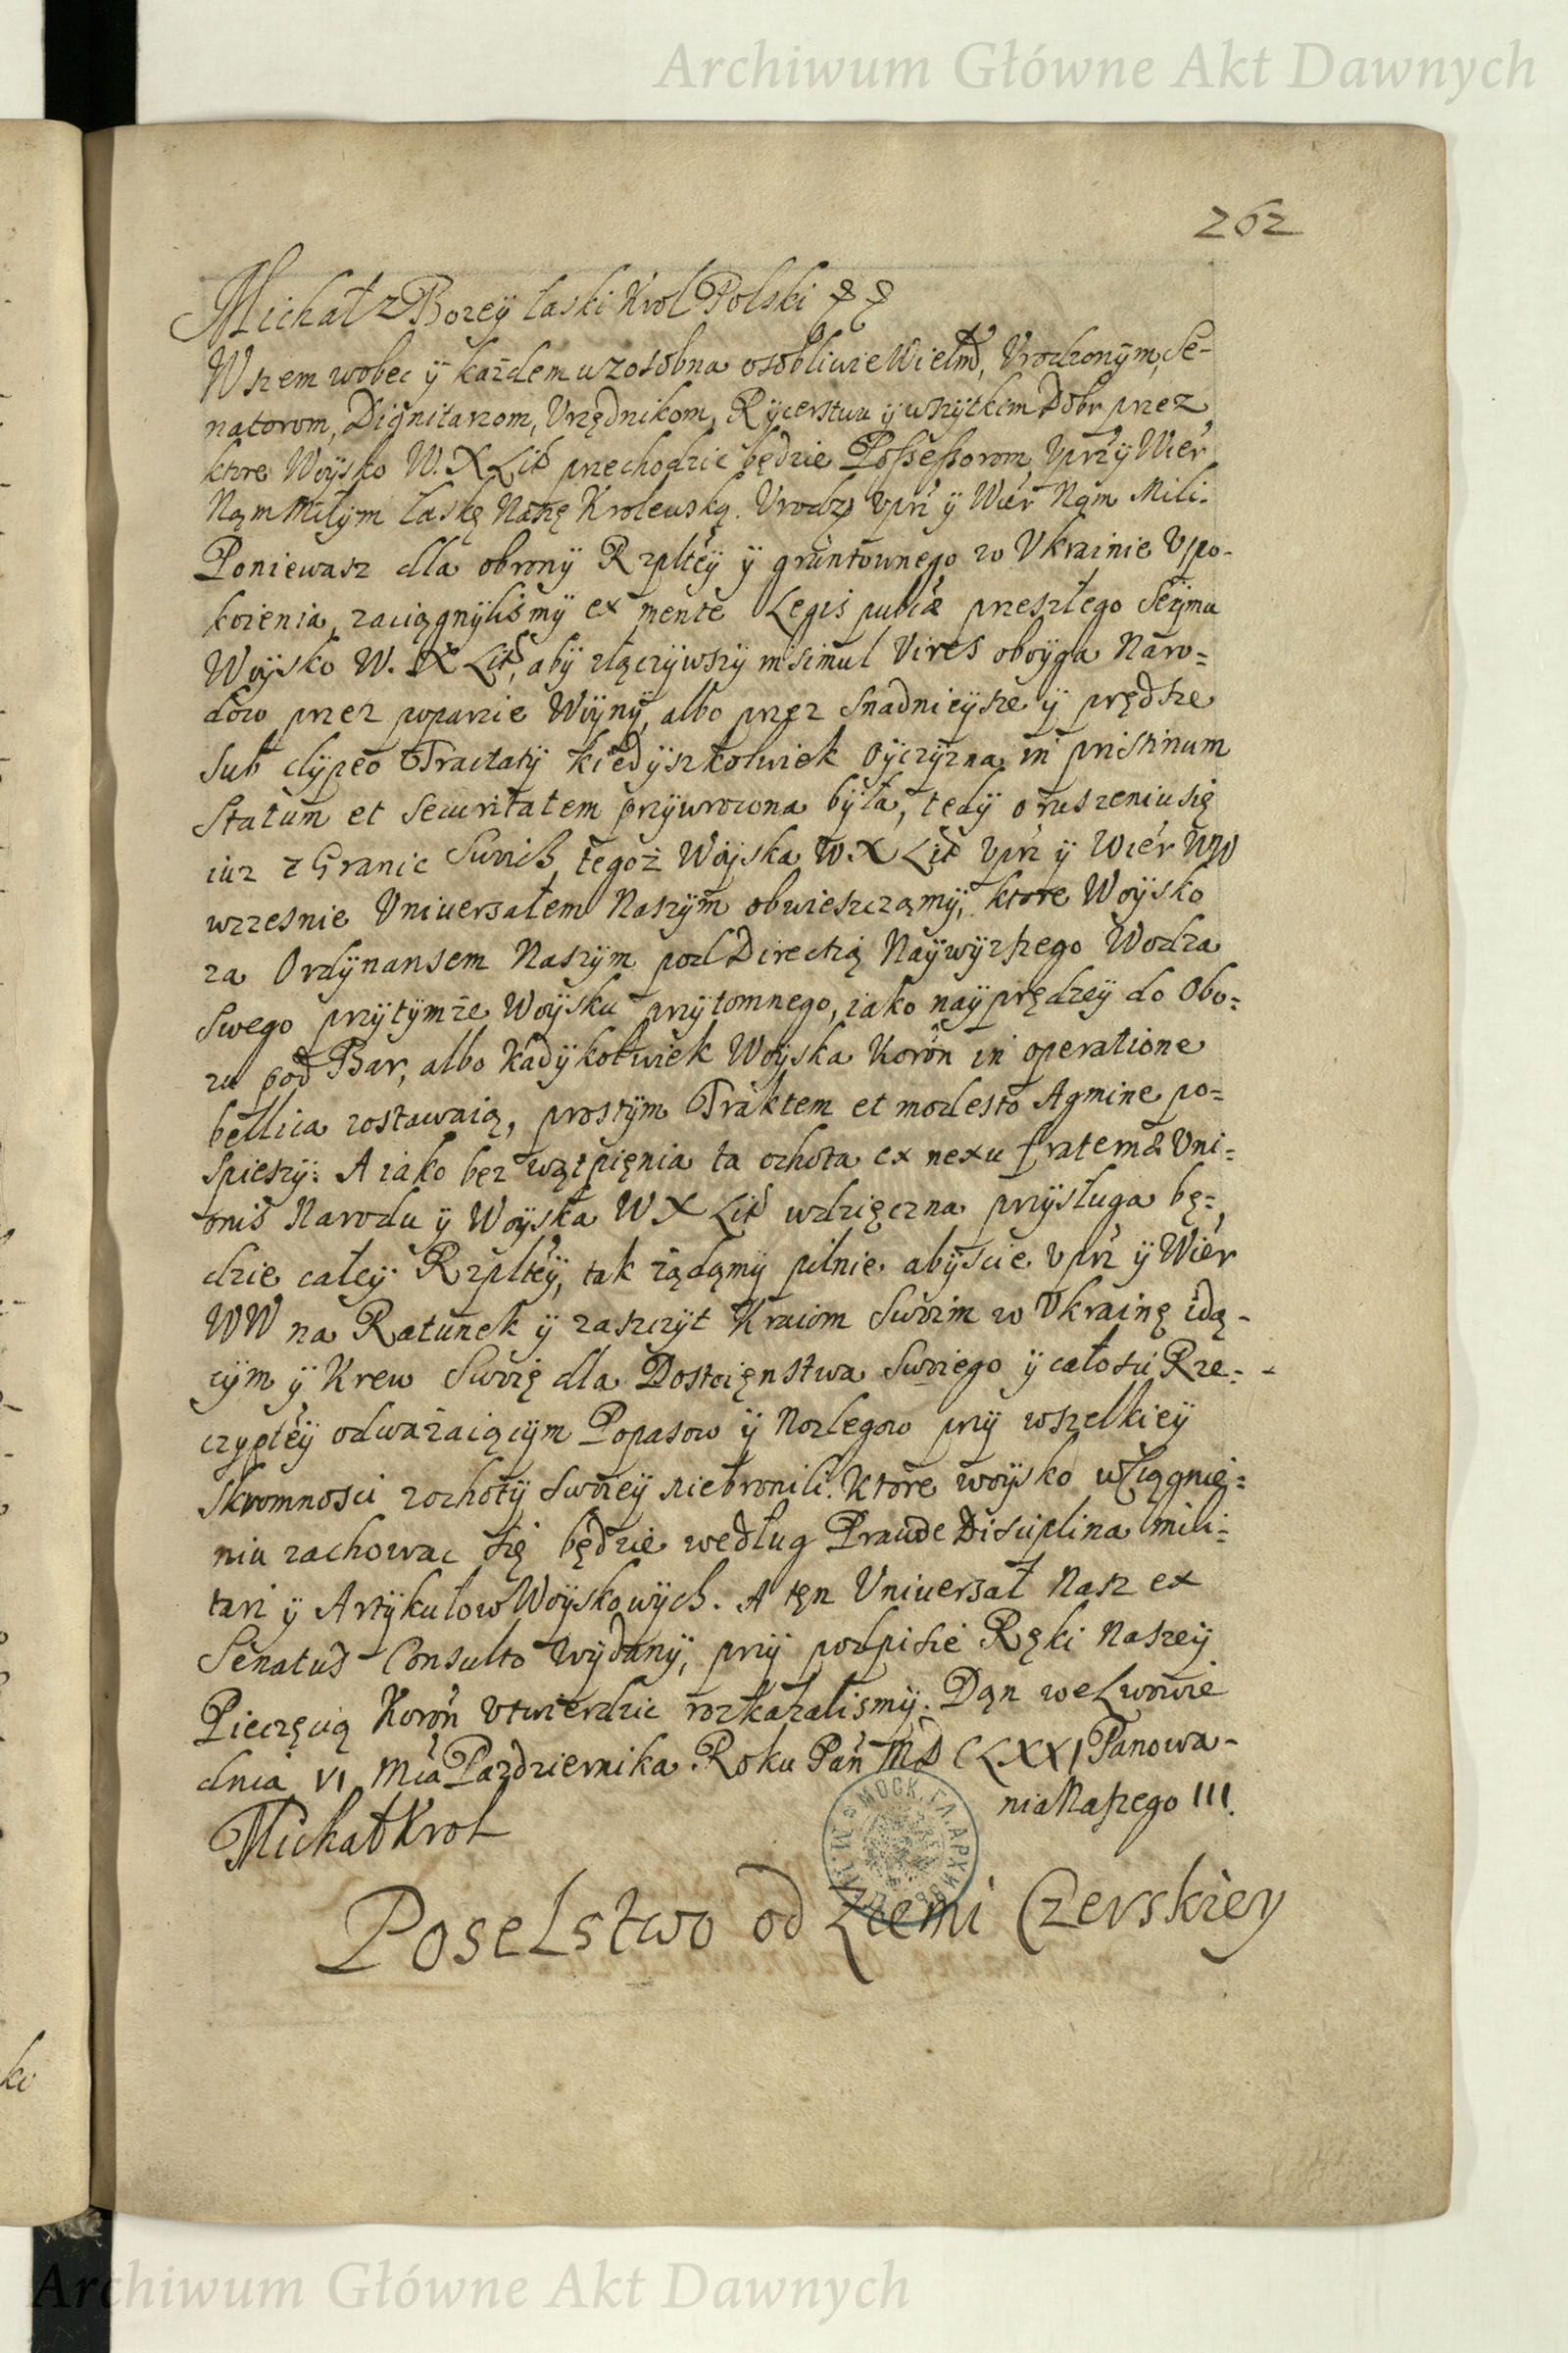 Archiwum Główne Akt Dawnych
262
Michał z Bozey łaski Krol Polski
Wszem wobec ÿ kaźdemu zosobna osobliwie Wielm, Vrodzonÿm, Se-
natorom, Dignitarzom, Vrzędnikom, Rÿcerstwu ÿ wszÿtkim Dobr przez
ktore Woÿsko W. X Lit przechodzic będzie Possessorom, Vprz ÿ Wier
Nąm Miłÿm łaskę Naszę Krolewską. Vrodz Vprz ÿ Wier Nąm Mili.
Poniewasz dla obronÿ Rzplteÿ ÿ gruntownego w Vkrainie Vspo-
koienia, zaciągnÿlismÿ ex mente Legis publicæ przeszłego Seÿmu
Woÿsko W. X Lit, abÿ złączÿwszÿ insimul Vires oboÿga Naro=
dow przez poparcie Woÿnÿ, albo przez snadnieÿsze ÿ prędsze
sub clÿpeo Tractatÿ kiedÿszkolwiek Oÿczÿzna in pristinum
Statum et Securitatem przÿwrocona bÿła, tedÿ o ruszeniu się
iuz z Granic Swoich, tegoż Woÿska W. X Lit Vprz ÿ Wier WW
wczesnie Vniversałem Naszÿm obwieszczamÿ, ktore Woÿsko
za Ordÿnansem Naszÿm pod Directią Naÿwÿzszego Wodza
Swego przÿtÿmże Woÿsku przÿtomnego, iako naÿprędzeÿ do Obo=
zu pod Bar, albo kądÿkolwiek Woÿska Koron in operatione
bellica zostawaią, prostÿm Traktem et modesto Agmine po=
spieszÿ: A iako bez wątpięnia ta ochota ex nexu fraternæ Vni=
onis Narodu ÿ Woÿska W X Lit wdzięczna przÿsługa bę=
dzie całeÿ Rzplteÿ, tak żądąmÿ pilnie abÿscie Vprz ÿ Wier
WW na Ratunek ÿ zaszczÿt Kraiom Swoim w Vkrainę idą-
cÿm ÿ Krew Swoię dla Dostoięnstwa Swoiego ÿ całosci Rze=
czyplteÿ odważaiącÿm Popasow ÿ Noclegow przÿ wszelkieÿ
skromnosci z ochotÿ swoieÿ niebronili. Ktore woÿsko w Ciągnie=
niu zachowac się będzie według Prawde Disciplina mili=
tari ÿ Artÿkułow Woÿskowÿch. A tęn Vniversał Nasz ex
Senatus Consulto Wÿdanÿ, przÿ podpisie Ręki Naszeÿ
Pieczęcią Koron Vtwierdzic rozkazalismÿ. Dąn we Lwowie
dnia VI Mca Pazdziernika Roku Pan MD CLXXI Panowa-
nia Naszego III.
Michał Krol
МОСК. ГЛ. АРХИВЪ М. И. Д.
Poselstwo od Ziemi Czerskiey
Archiwum Główne Akt Dawnych